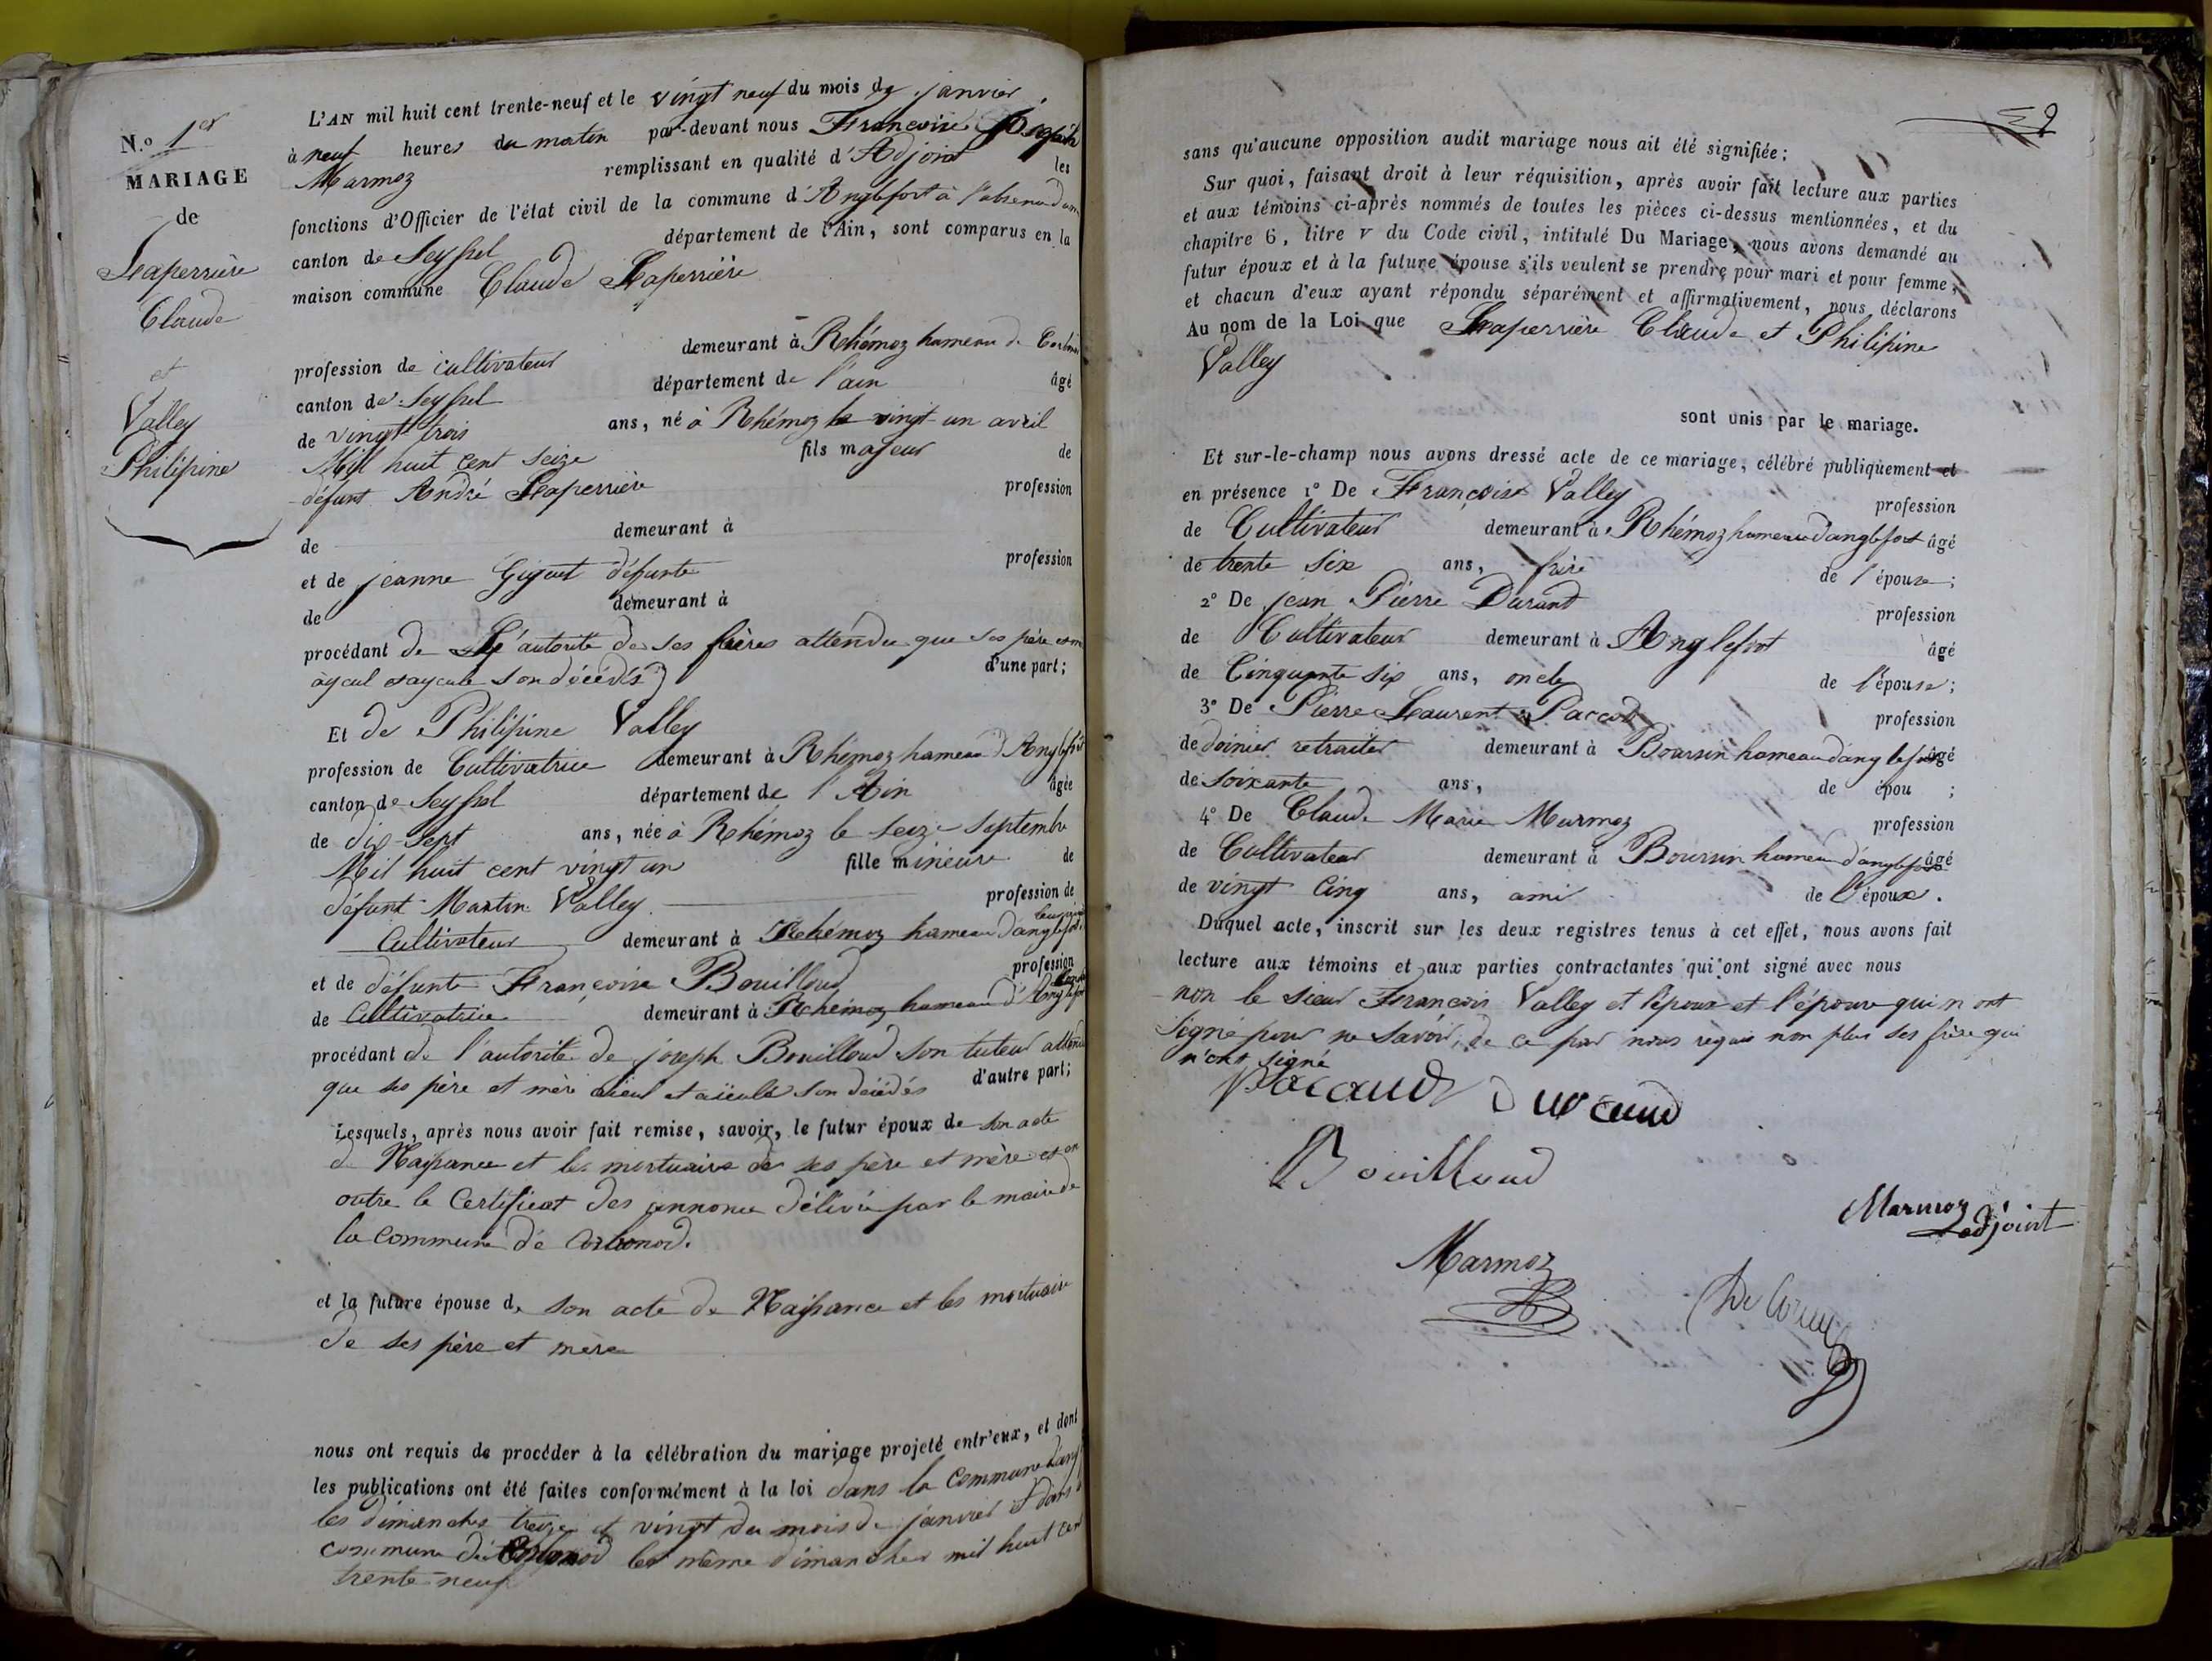 N.o 1er
MARIAGE
de
Laperrière
Claude
et
Valley
Philipine
L'AN mil huit cent trente-neuf et le vingt neuf du mois de janvier
à neuf heures du matin par-devant nous François Joseph
Marmoz remplissant en qualité d'Adjoint les
fonctions d'Officier de l'état civil de la commune d'Anglefort à l'absence
canton de Seyssel département de l'Ain, sont comparus en la
maison commune Claude Laperrière
profession de cultivateur demeurant à Rhémoz hameau de
canton de Seyssel département de l'ain âgé
de vingt trois ans, né à Rhémoz le vingt un avril
Mil huit cent seize fils majeur de
défunt André Laperrière profession
de demeurant à
et de jeanne Giguet défunte profession
de demeurant à
procédant de L'autorité de ses frères attendu que ses père et
ayeul et ayeule son décédés d'une part;
Et de Philipine Valley
profession de Cultivatrice demeurant à Rhémoz hameau d'Anglefort
canton de Seyssel département de l'Ain âgée
de dix-sept ans, née à Rhémoz le seize septembre
Mil huit cent vingt un fille mineure de
défunt Martin Valley profession de
Cultivateur demeurant à Rhémoz hameau d'anglefort
et de défunte Françoise Bouilloud profession
de Cultivatrice demeurant à Rhémoz hameau d'Anglefort
procédant de l'autorité de joseph Bouilloud son tuteur attendu
que ses père et mère aïeul et aïeule son décédés d'autre part;
Lesquels, après nous avoir fait remise, savoir, le futur époux de son acte
de Naissance et les mortuaires de ses père et mère et en
outre le Certificat des annonce délivré par le maire de
la Commune de Corbonod.
et la future épouse de son acte de Naissance et les mortuaire
de ses père et mère
nous ont requis de procéder à la célébration du mariage projeté entr'eux, et dont
les publications ont été faites conformément à la loi dans la Commune d'ang
les dimanches treize et vingt du mois de janvier et dans
commune de Corbonod les même dimanches mil huit cent
trente-neuf
2
sans qu'aucune opposition audit mariage nous ait été signifiée;
Sur quoi, faisant droit à leur réquisition, après avoir fait lecture aux parties
et aux témoins ci-après nommés de toutes les pièces ci-dessus mentionnées, et du
chapitre 6, titre V du Code civil, intitulé Du Mariage, nous avons demandé au
futur époux et à la future épouse s'ils veulent se prendre pour mari et pour femme,
et chacun d'eux ayant répondu séparément et affirmativement, nous déclarons
Au nom de la Loi que Laperrière Claude et Philipine
Valley
sont unis par le mariage.
Et sur-le-champ nous avons dressé acte de ce mariage, célébré publiquement et
en présence 1° De François Valley profession
de Cultivateur demeurant à Rhémoz hameau d'anglefort âgé
de trente six ans, frère de l'épouse;
2° De jean Pierre Durand profession
de Cultivateur demeurant à Anglefort âgé
de Cinquante six ans, oncle de l'épouse;
3° De Pierre Laurent profession
de doinier retraiter demeurant à Boursin hameau d'anglefort âgé
de soixante ans, de épou ;
4° De Claude Marie Marmoz profession
de Cultivateur demeurant à Boursin hameau d'anglefort âgé
de vingt Cinq ans, ami de l'époux.
Duquel acte, inscrit sur les deux registres tenus à cet effet, nous avons fait
lecture aux témoins et aux parties contractantes qui ont signé avec nous
non le sieur François Valley et l'époux et l'épouse qui n'ont
signé pour ne savoir, de ce par nous requis non plus ses frère qui
n'ont signé
Durand
Bouilloud
Marmoz
adjoint
Marmoz